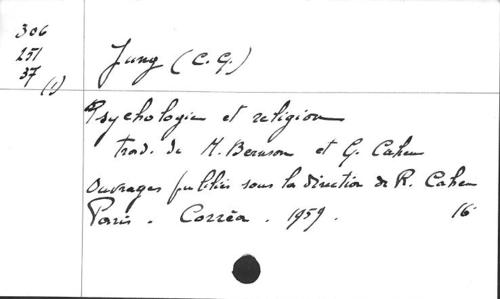 306
251
37
(1)
Jung (C. G.)
Psychologie et religion
trad. de M. Bernson et G. Cahen
Ouvrages publiés sous la direction de R. Cahen
Paris. Corrêa. 1959. 16°